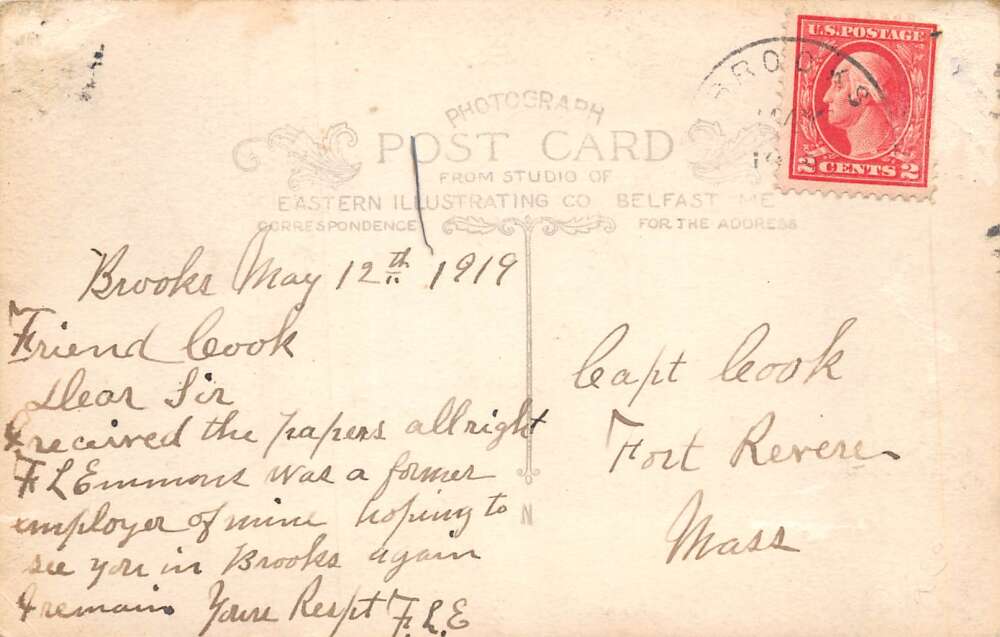 PHOTOGRAPH
POST CARD
FROM STUDIO OF
EASTERN ILLUSTRATING CO BELFAST ME
CORRESPONDENCE
FOR THE ADDRESS
U.S. POSTAGE
2 CENTS 2
BROOKS
Brooks May 12th 1919
Friend Cook
Dear Sir
I received the papers allright
F L Emmons was a former
employer of mine hoping to
see you in Brooks again
I remain Yours Respt F.L.E
Capt Cook
Fort Revere
Mass
N